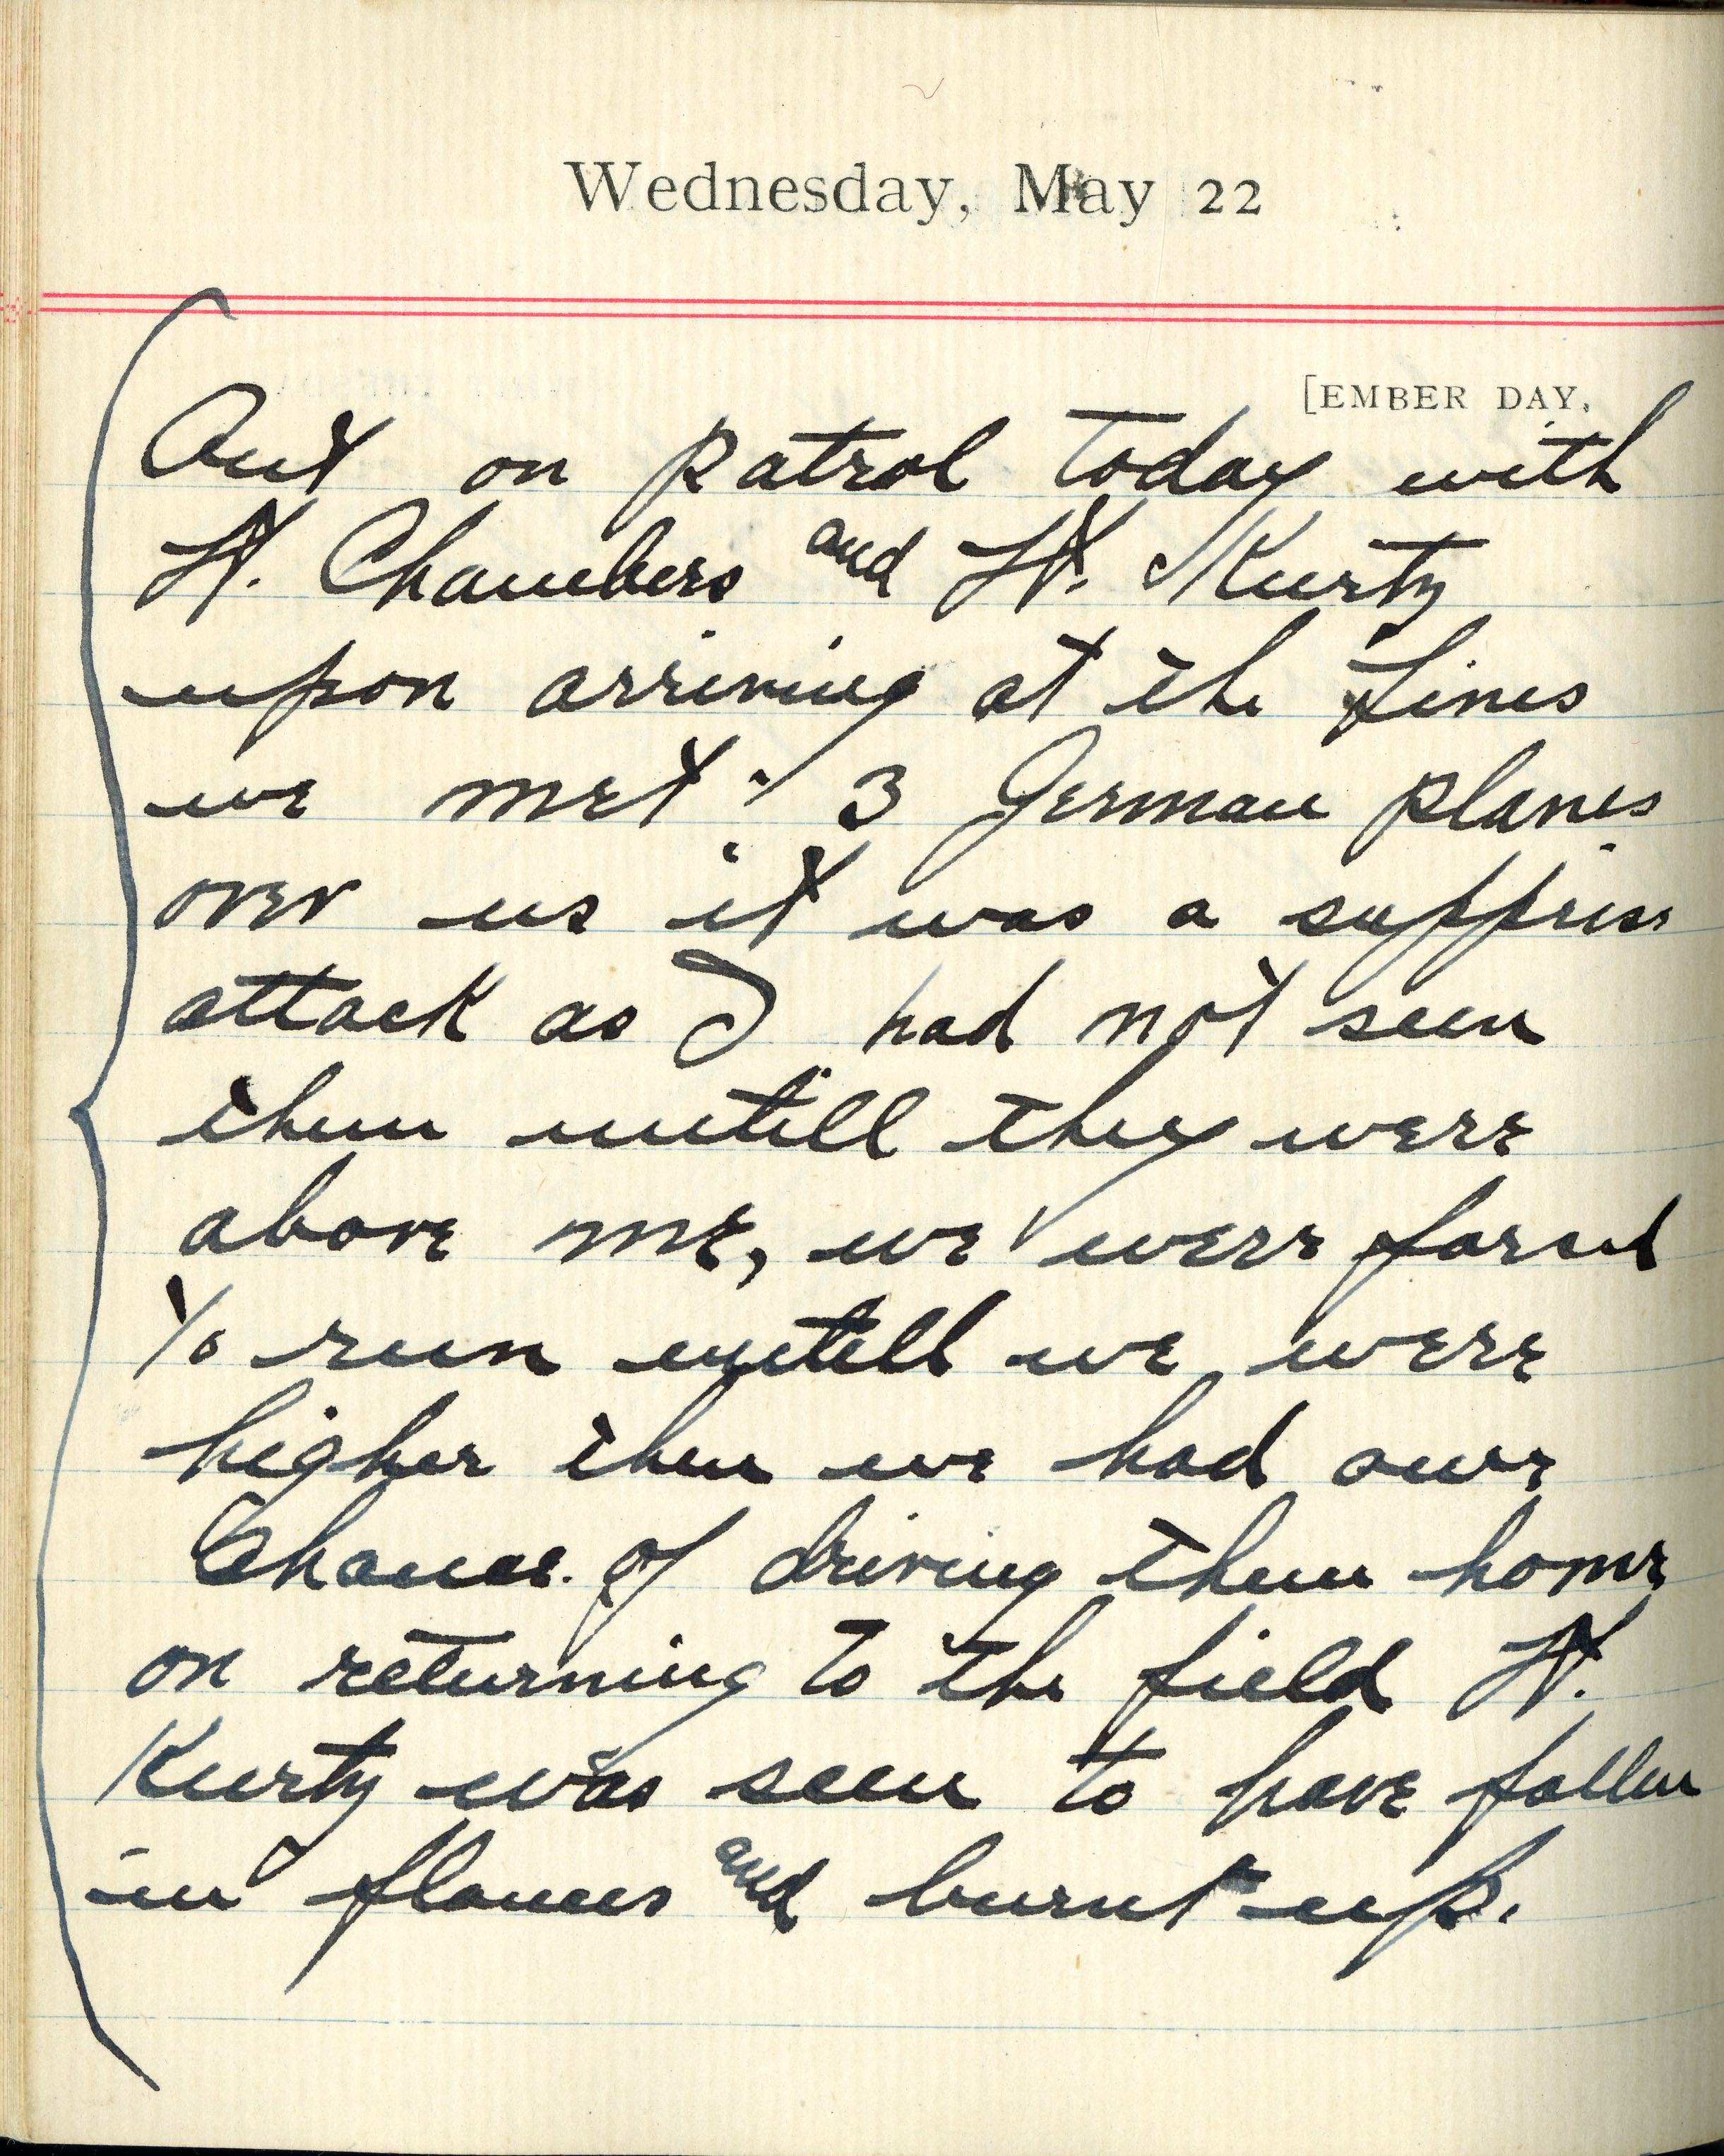 Wednesday, May 22
[EMBER DAY.
Out on patrol today with
Lt. Chambers and Lt. Kurtz
upon arriving at the Lines
we met 3 German planes
over us it was a supprise
attack as I had not seen
them untill they were
above me, we were forced
to run untill we were
higher then we had our
Chance of driving them home
on returning to the field Lt.
Kurtz was seen to have fallen
in flames and burnt up.